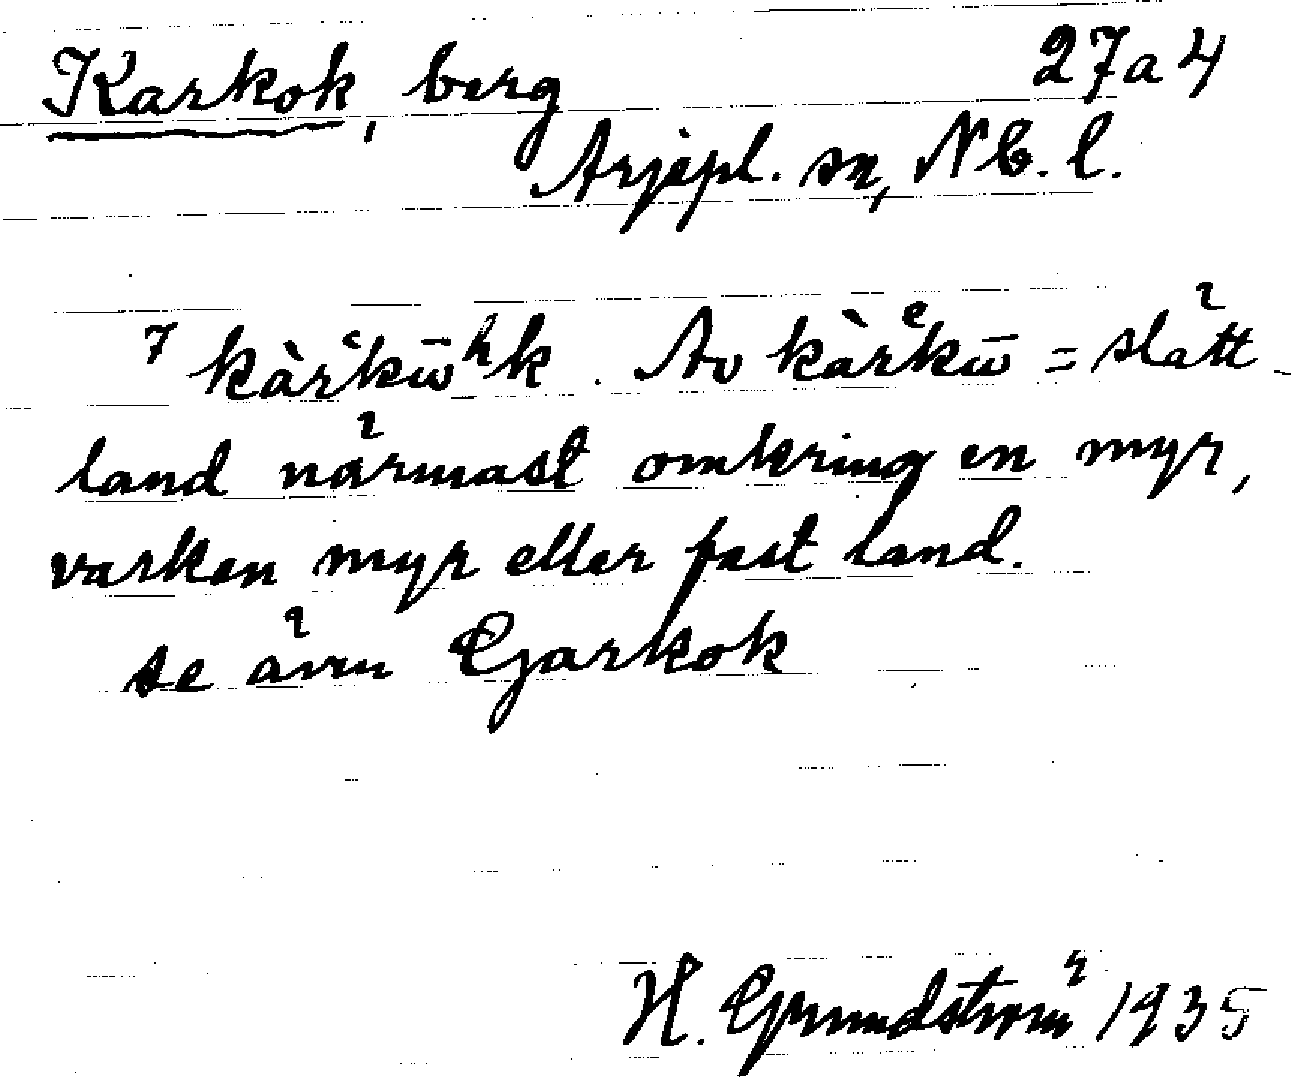 Karkok, berg 27a4
Arjepl. sn, Nb. l.
7 kàrᵋkω̄ʰk. Av kàrᵉkω̄ = slätt-
land närmast omkring en myr,
varken myr eller fast land.
se även Gjarkok
H. Grundström 1935